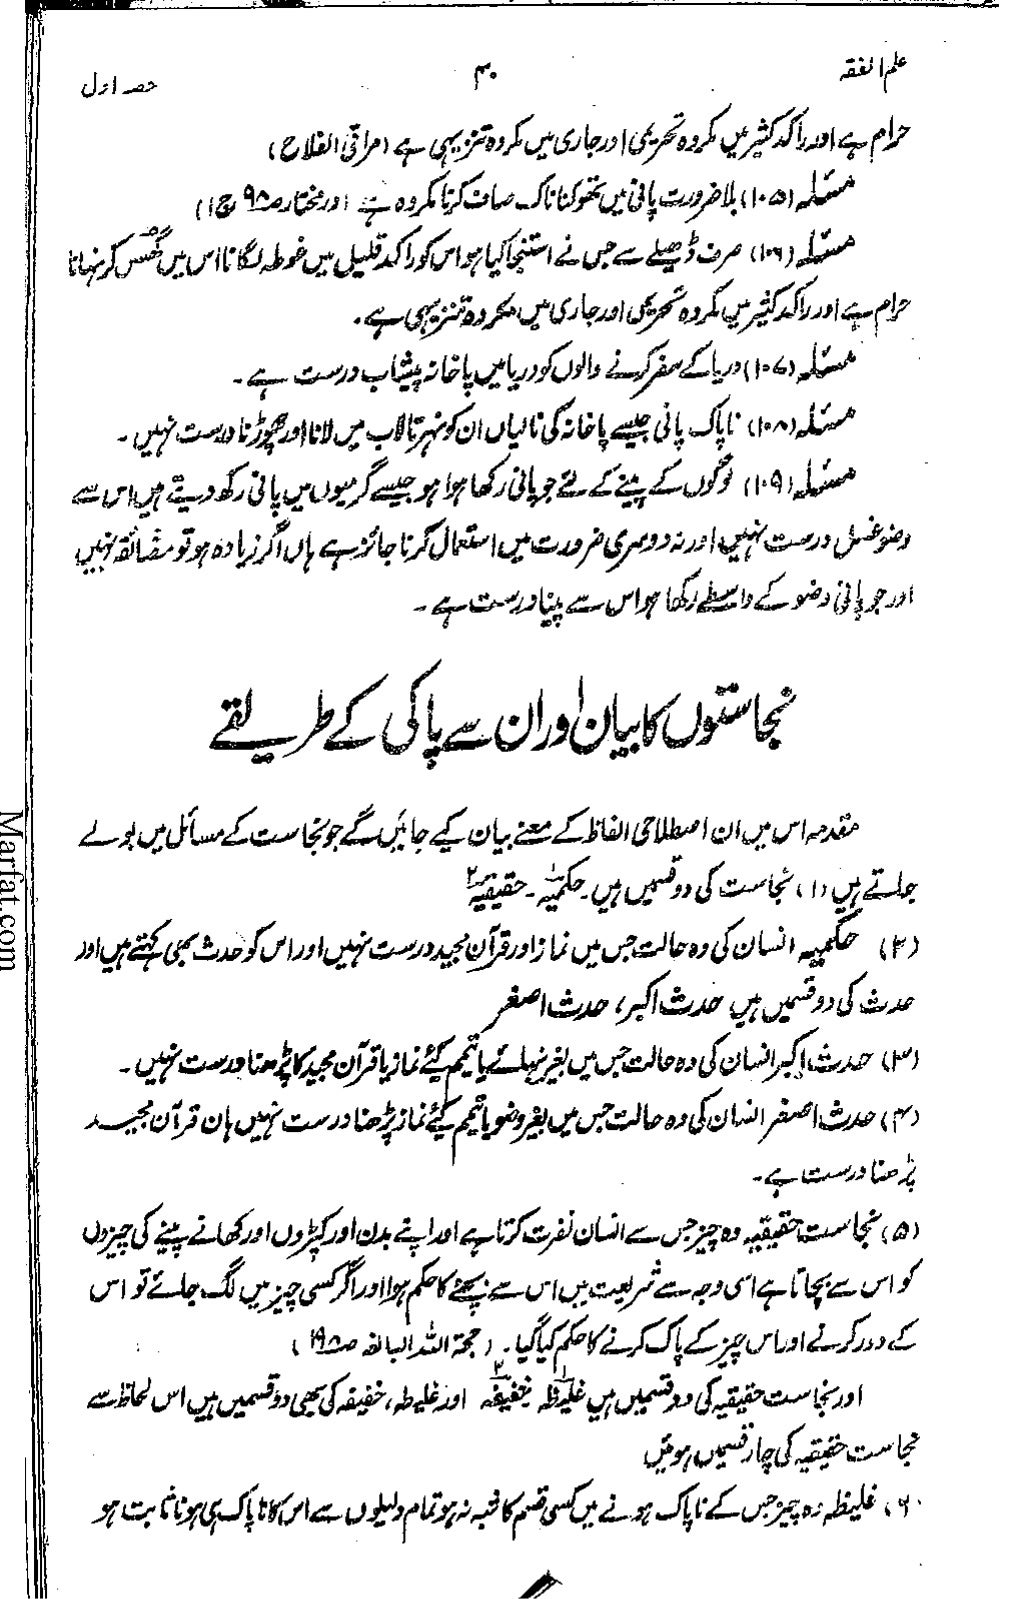 علم الفقہ
۴۰
حصہ اول
حرام ہے اور راکد کثیر میں مکروہ تحریمی اور جاری میں مکروہ تنزیہی ہے (مراقی الفلاح)
مسئلہ (۱۰۵) بلا ضرورت پانی میں تھوکنا ناک صاف کرنا مکروہ ہے (درمختار صـ۹۸ ج۱)
مسئلہ (۱۰۶) صرف ڈھیلے سے جس نے استنجا کیا ہو اس کو راکد قلیل میں غوطہ لگانا اس میں گھس کر نہانا
حرام ہے اور راکد کثیر میں مکروہ تحریمی اور جاری میں مکروہ تنزیہی ہے۔
مسئلہ (۱۰۷) دریا کے سفر کرنے والوں کو دریا میں پاخانہ پیشاب درست ہے۔
مسئلہ (۱۰۸) ناپاک پانی جیسے پاخانہ کی نالیاں ان کو نہر تالاب میں لانا اور چھوڑنا درست نہیں۔
مسئلہ (۱۰۹) لوگوں کے پینے کے لئے جو پانی رکھا ہوا ہو جیسے گرمیوں میں پانی رکھ دیتے ہیں اس سے
وضو غسل درست نہیں اور نہ دوسری ضرورت میں استعمال کرنا جائز ہے ہاں اگر زیادہ ہو تو مضائقہ نہیں
اور جو پانی وضو کے واسطے رکھا ہو اس سے پینا درست ہے۔
نجاستوں کا بیان اور ان سے پاکی کے طریقے
مقدمہ اس میں ان اصطلاحی الفاظ کے معنے بیان کیے جائیں گے جو نجاست کے مسائل میں بولے
جاتے ہیں (۱) نجاست کی دو قسمیں ہیں۔ حکمیہ۱۔ حقیقیہ۲
(۲) حکمیہ انسان کی وہ حالت جس میں نماز اور قرآن مجید درست نہیں اور اس کو حدث بھی کہتے ہیں اور
حدث کی دو قسمیں ہیں حدث اکبر، حدث اصغر
(۳) حدث اکبر انسان کی وہ حالت جس میں بغیر نہائے یا تیمم کیئے نماز یا قرآن مجید کا پڑھنا درست نہیں۔
(۴) حدث اصغر انسان کی وہ حالت جس میں بغیر وضو یا تیمم کیئے نماز پڑھنا درست نہیں ہاں قرآن مجید
پڑھنا درست ہے۔
(۵) نجاست حقیقیہ وہ چیز جس سے انسان نفرت کرتا ہے اور اپنے بدن اور کپڑوں اور کھانے پینے کی چیزوں
کو اس سے بچاتا ہے اسی وجہ سے شریعت میں اس سے بچنے کا حکم ہوا اور اگر کسی چیز میں لگ جائے تو اس
کے دور کرنے اور اس چیز کے پاک کرنے کا حکم کیا گیا۔ (حجۃ اللہ البالغہ صـ۱۹۸)
اور نجاست حقیقیہ کی دو قسمیں ہیں غلیظہ۱ خفیفہ۲ اور غلیظہ، خفیفہ کی بھی دو قسمیں ہیں اس لحاظ سے
نجاست حقیقیہ کی چار قسمیں ہوئیں
(۶) غلیظہ وہ چیز جس کے ناپاک ہونے میں کسی قسم کا شبہ نہ ہو تمام دلیلوں سے اس کا ناپاک ہی ہونا ثابت ہو
Marfat.com